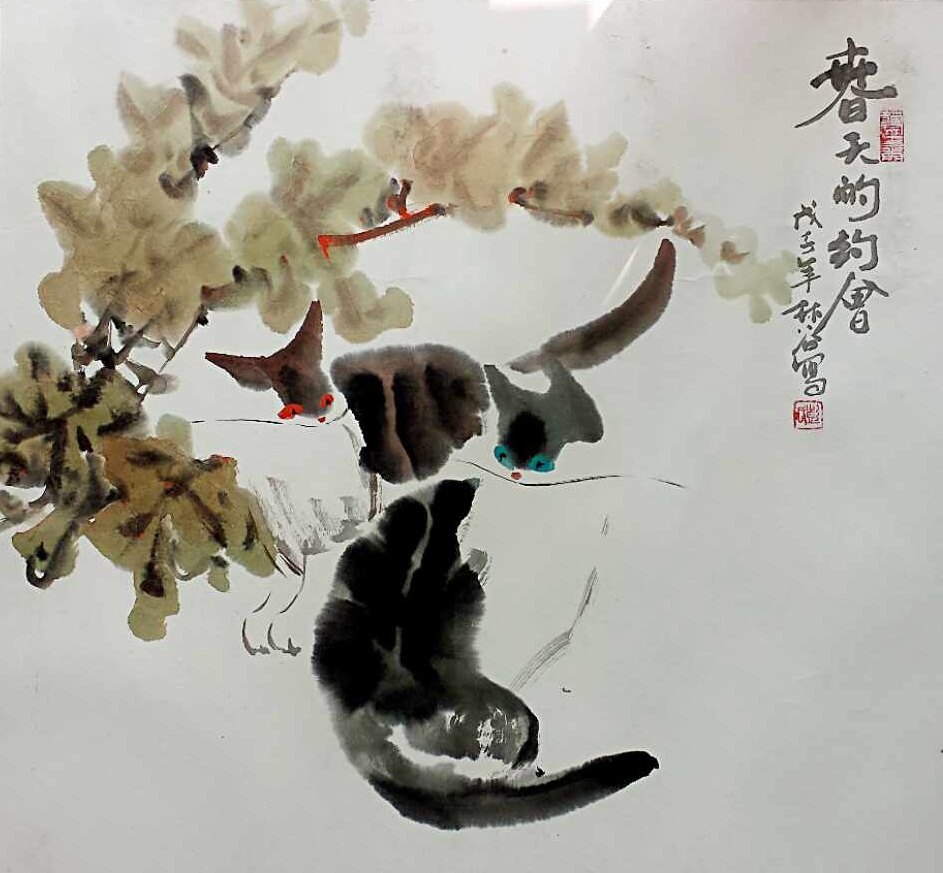 春天的约會
戊子年林谷寫